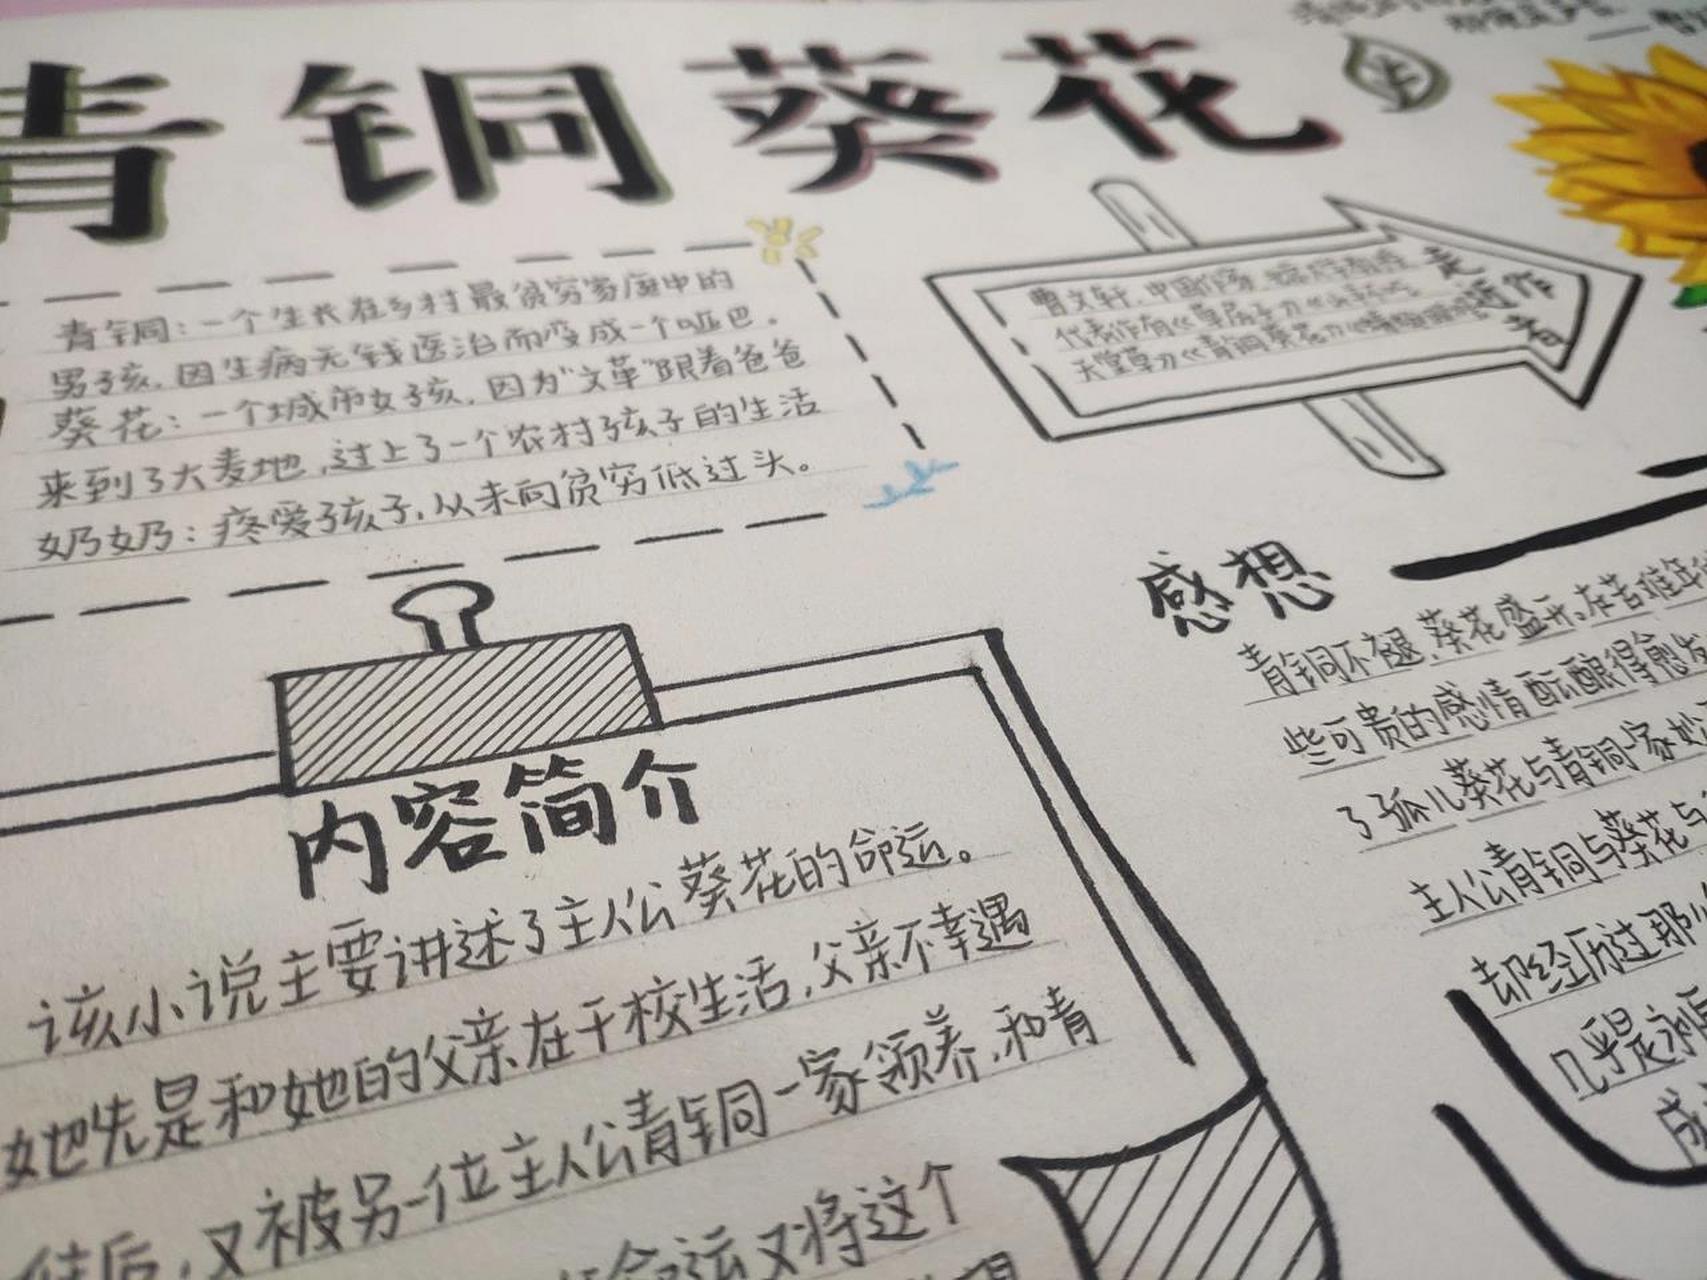 青铜葵花
青铜:一个生长在乡村最贫穷家庭中的
男孩,因生病无钱医治而变成一个哑巴。
葵花:一个城市女孩,因为“文革”跟着爸爸
来到了大麦地,过上了一个农村孩子的生活
奶奶:疼爱孩子,从未向贫穷低过头。
曹文轩,中国作家
代表作有《草房子》
天堂草》《青铜葵花》
走近作者
内容简介
该小说主要讲述了主人公葵花的命运。
她先是和她的父亲在干校生活,父亲不幸遇
后,又被另一位主人公青铜一家领养,和青
命运又将这个
感想
青铜不褪,葵花盛开,在苦难年
些可贵的感情酝酿得愈发
了孤儿葵花与青铜一家
主人公青铜与葵花与
却经历过那
几乎是